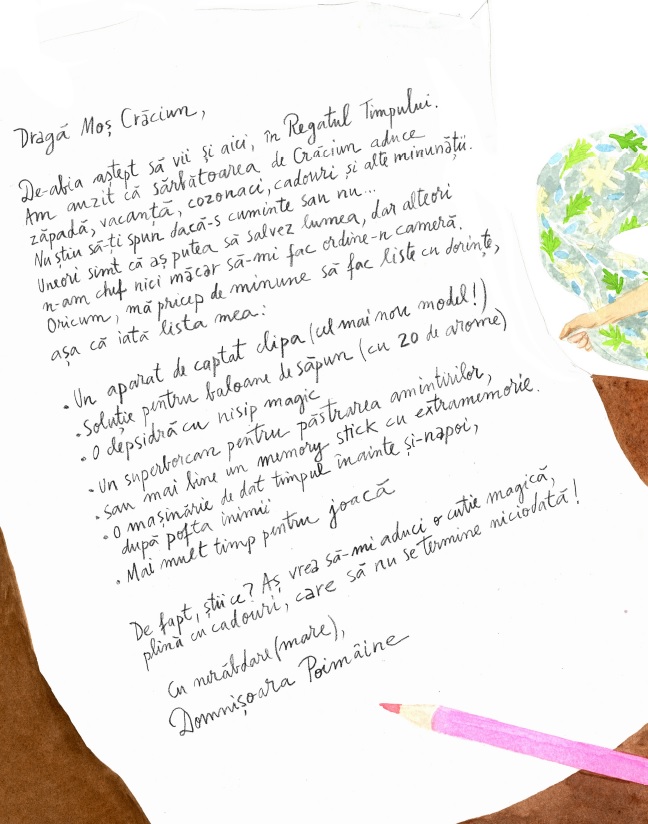 Dragă Moș Crăciun,
De-abia aștept să vii și aici, în Regatul Timpului.
Am auzit că sărbătoarea de Crăciun aduce
zăpadă, vacanță, cozonaci, cadouri și alte minunății.
Nu știu să-ți spun dacă-s cuminte sau nu...
Uneori simt că aș putea să salvez lumea, dar alteori
n-am chef nici măcar să-mi fac ordine-n cameră.
Oricum, mă pricep de minune să fac liste cu dorințe,
așa că iată lista mea:
• Un aparat de captat clipa (cel mai nou model!)
• Soluție pentru baloane de săpun (cu 20 de arome)
• O clepsidră cu nisip magic
• Un superborcan pentru păstrarea amintirilor,
• sau mai bine un memory stick cu extramemorie.
• O mașinărie de dat timpul înainte și-napoi,
după pofta inimii
• Mai mult timp pentru joacă
De fapt, știi ce? Aș vrea să-mi aduci o cutie magică,
plină cu cadouri, care să nu se termine niciodată!
Cu nerăbdare (mare),
Domnișoara Poimâine